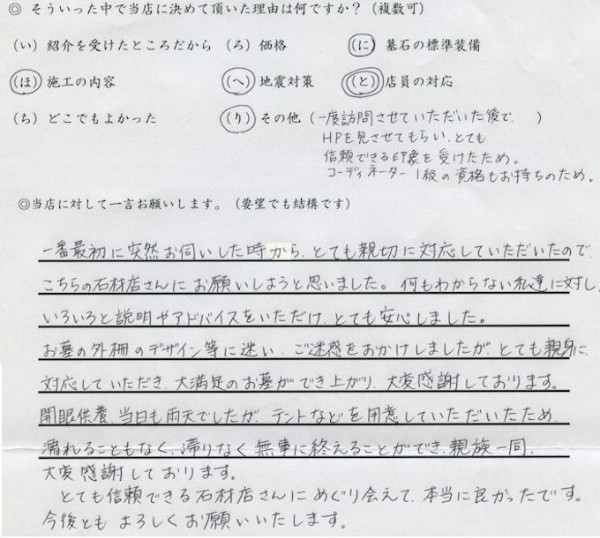 ◎ そういった中で当店に決めて頂いた理由は何ですか？（複数可）
（い）紹介を受けたところだから（ろ）価格 （に）墓石の標準装備
（ほ）施工の内容 （へ）地震対策 （と）店員の対応
（ち）どこでもよかった （り）その他（一度訪問させていただいた後で、 ）
HPを見させてもらい、とても
信頼できる印象を受けたため。
コーディネーター1級の資格もお持ちのため。
◎当店に対して一言お願いします。（要望でも結構です）
一番最初に突然お伺いした時から、とても親切に対応していただいたので、
こちらの石材店さんにお願いしようと思いました。何もわからない私達に対し、
いろいろと説明やアドバイスをいただけ、とても安心しました。
お墓の外柵のデザイン等に迷い、ご迷惑をおかけしましたが、とても親身に
対応していただき、大満足のお墓ができ上がり、大変感謝しております。
開眼供養、当日も雨天でしたが、テントなどを用意していただいたため、
濡れることもなく、滞りなく無事に終えることができ、親族一同、
大変感謝しております。
とても信頼できる石材店さんにめぐり会えて、本当に良かったです。
今後ともよろしくお願いいたします。